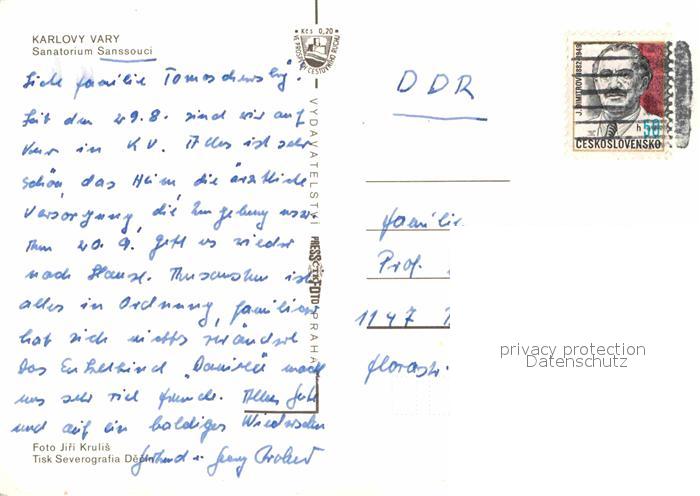 KARLOVY VARY
Sanatorium Sanssouci
Kčs 0,20
Liebe Familie
Seit dem 29.8. sind wir auf
Kur in K.V. Alles ist sehr
schön, das Heim, die ärztliche
Versorgung, die Umgebung usw.
Am 20. 9. geht es wieder
nach Hause. Ansonsten ist
alles in Ordnung, familiär
hat sich nichts verändert
Das Enkelkind "Daniela" macht
uns sehr viel Freude. Alles Gute
und auf ein baldiges Wiedersehen
Georg
Foto Jiří Kruliš
Tisk Severografia Děčín
VYDAVATELSTVÍ PRESSFOTO PRAHA
DDR
J. DIMITROV 1882-1949
50 h
ČESKOSLOVENSKO
Familie
Prof.
1147
Florastr.
privacy protection
Datenschutz